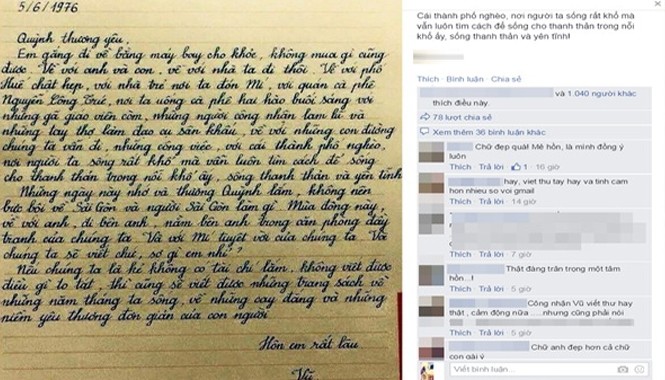 5/6/1976
Quỳnh thương yêu,
Em gắng đi về bằng máy bay cho khỏe, không mua gì cũng
được. Về với anh và con, về với nhà ta đi thôi. Về với phố
Huế chật hẹp, với nhà trẻ nơi ta đón Mí, với quán cà phê
Nguyễn Công Trứ, nơi ta uống cà phê hai hào buổi sáng với
những gã giáo viên còm, những người công nhân lam lũ và
những tay thợ làm đạo cụ sân khấu, về với những con đường
chúng ta vẫn đi, những công việc, với cái thành phố nghèo,
nơi người ta sống rất khổ mà vẫn luôn tìm cách để sống
cho thanh thản trong nỗi khổ ấy, sống thanh thản và yên tĩnh
Những ngày này nhớ và thương Quỳnh lắm, không nên
bực bội về Sài Gòn và người Sài Gòn làm gì. Mùa đông này,
về với anh, đi bên anh, nằm bên anh trong căn phòng đầy
tranh của chúng ta. Và với Mí tuyệt vời của chúng ta. Và
chúng ta sẽ viết chứ, sợ gì em nhỉ?
Nếu chúng ta là kẻ không có tài chí lắm, không viết được
điều gì to tát, thì cũng sẽ viết được những trang sách về
những năm tháng ta sống, về những cay đắng và những
niềm yêu thương đơn giản của con người
Hôn em rất lâu
Vũ
Cái thành phố nghèo, nơi người ta sống rất khổ mà
vẫn luôn tìm cách để sống cho thanh thản trong nỗi
khổ ấy, sống thanh thản và yên tĩnh!
Thích · Bình luận · Chia sẻ
và 1.040 người khác
thích điều này.
78 lượt chia sẻ
Xem thêm 36 bình luận khác
Chữ đẹp quá! Mê hồn, là mình đồng ý
luôn
Thích · Trả lời · 1 · 16 giờ
hay, viet thu tay hay va tinh cam
hon nhieu so voi gmail
Thích · Trả lời · 14 giờ
Thích · Trả lời · 7 giờ
Thật đáng trân trọng một tâm
hồn...!
Thích · Trả lời · 5 giờ
Công nhận Vũ viết thư hay
thật , cảm động nữa .....nhưng cũng phải nói
Thích · Trả lời · 5 giờ
Chữ anh đẹp hơn cả chữ
con gái ý
Viết bình luận...